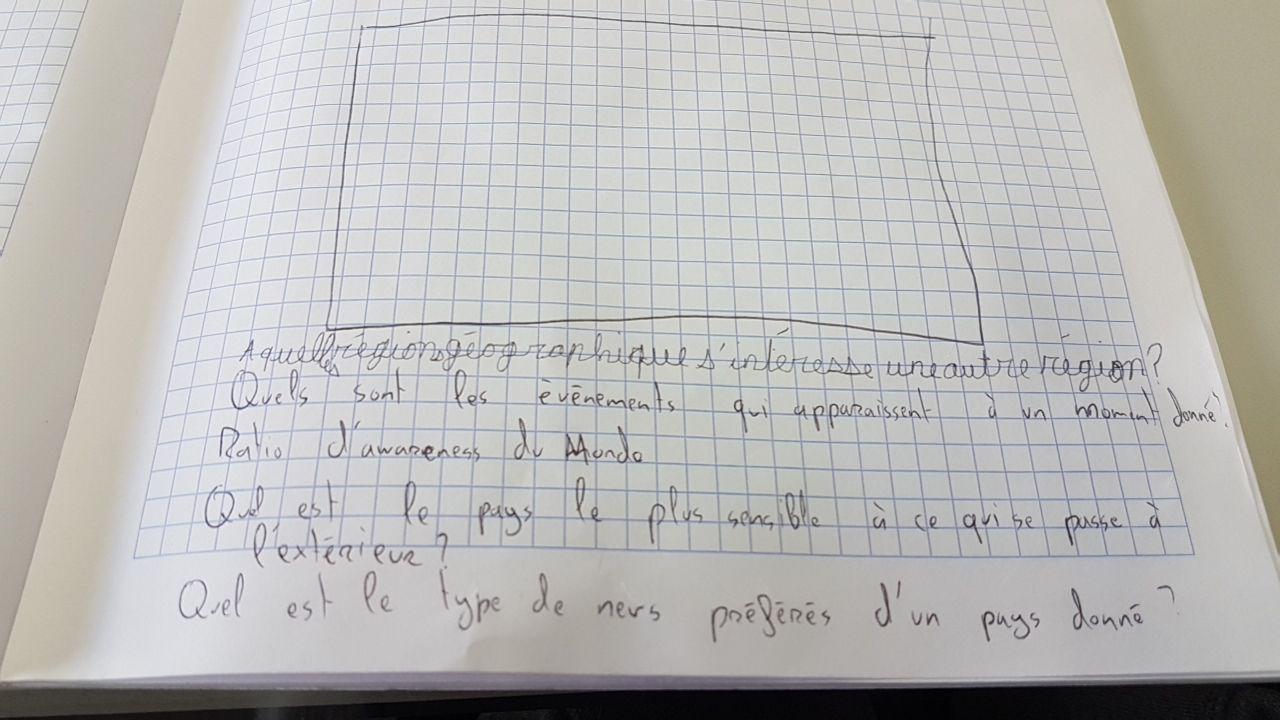 A quelles régions géographique s'intéresse une autre région?
Quels sont les évènements qui apparaissent à un moment donné?
Ratio d'awareness du Monde
Quel est le pays le plus sensible à ce qui se passe à
l'extérieur?
Quel est le type de news préférés d'un pays donné?